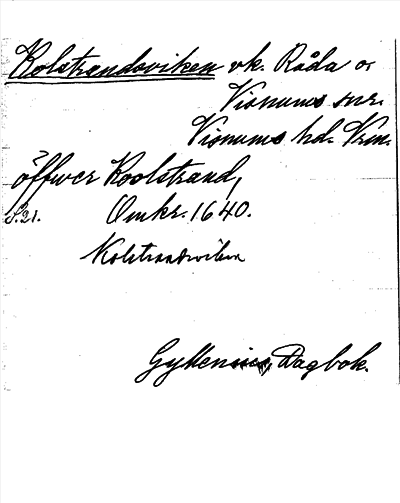 Kolstrandsviken vk. Råda o.
Visnums snr.
Visnums hd. Vrm.
öffwer Koolstrand,
S. 21. Omkr. 1640.
Kolstrandsviken
Gyllenius, Dagbok.